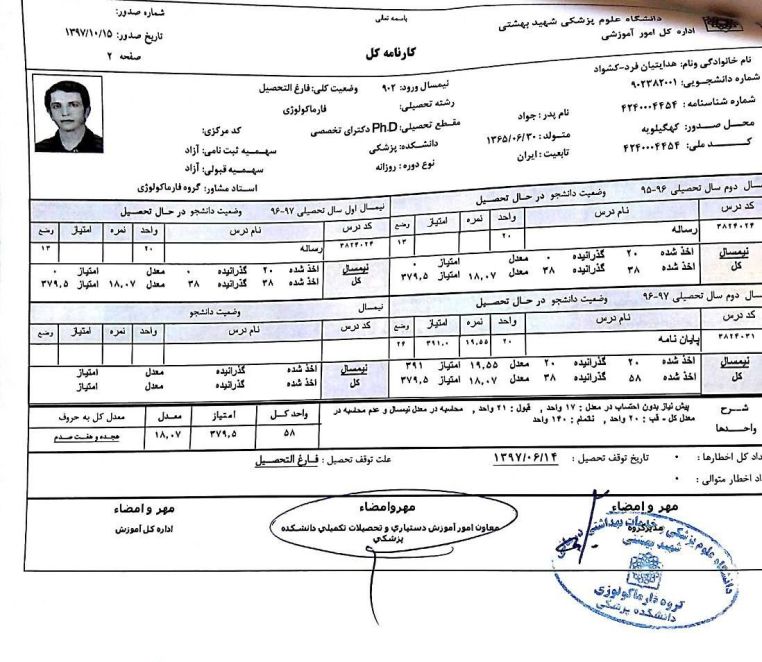 باسمه تعالی
دانشگاه علوم پزشکی شهید بهشتی
اداره کل امور آموزشی
کارنامه کل
شماره صدور:
تاریخ صدور: ۱۳۹۷/۱۰/۱۵
صفحه ۲
نام خانوادگی ونام: هدایتیان فرد-کشواد
شماره دانشجویی: ۹۰۲۳۸۲۰۰۱
شماره شناسنامه: ۴۲۴۰۰۰۴۴۵۴
محل صدور: کهگیلویه
کد ملی: ۴۲۴۰۰۰۴۴۵۴
نام پدر: جواد
متولد: ۱۳۶۵/۰۶/۳۰
تابعیت: ایران
نیمسال ورود: ۹۰۲ وضعیت کلی: فارغ التحصیل
رشته تحصیلی: فارماکولوژی
مقطع تحصیلی: Ph.D دکترای تخصصی
دانشکده: پزشکی
نوع دوره: روزانه
کد مرکزی:
سهمیه ثبت نامی: آزاد
سهمیه قبولی: آزاد
استاد مشاور: گروه فارماکولوژی
سال دوم سال تحصیلی ۹۶-۹۵ وضعیت دانشجو در حال تحصیل
کد درس نام درس واحد نمره امتیاز وضع
۳۸۲۴۰۲۴ رساله ۲۰ ۱۳
نیمسال اخذ شده ۲۰ گذرانیده ۰ معدل امتیاز ۰
کل اخذ شده ۳۸ گذرانیده ۳۸ معدل ۱۸,۰۷ امتیاز ۳۷۹,۵
نیمسال اول سال تحصیلی ۹۷-۹۶ وضعیت دانشجو در حال تحصیل
کد درس نام درس واحد نمره امتیاز وضع
۳۸۲۴۰۲۴ رساله ۲۰ ۱۳
نیمسال اخذ شده ۲۰ گذرانیده ۰ معدل امتیاز ۰
کل اخذ شده ۳۸ گذرانیده ۳۸ معدل ۱۸,۰۷ امتیاز ۳۷۹,۵
سال دوم سال تحصیلی ۹۷-۹۶ وضعیت دانشجو در حال تحصیل
کد درس نام درس واحد نمره امتیاز وضع
۳۸۲۴۰۳۱ پایان نامه ۲۰ ۱۹,۵۵ ۳۹۱,۰ ۲۶
نیمسال اخذ شده ۲۰ گذرانیده ۲۰ معدل ۱۹,۵۵ امتیاز ۳۹۱
کل اخذ شده ۵۸ گذرانیده ۳۸ معدل ۱۸,۰۷ امتیاز ۳۷۹,۵
نیمسال وضعیت دانشجو
کد درس نام درس واحد نمره امتیاز وضع
نیمسال اخذ شده گذرانیده معدل امتیاز
کل اخذ شده گذرانیده معدل امتیاز
شرح واحدها
پیش نیاز بدون احتساب در معدل: ۱۷ واحد, قبول: ۲۱ واحد, محاسبه در معدل نیمسال و عدم محاسبه در
معدل کل - قب: ۲۰ واحد, ناتمام: ۱۴۰ واحد
واحد کل امتیاز معدل معدل کل به حروف
۵۸ ۳۷۹,۵ ۱۸,۰۷ هیجده و هفت صدم
داد کل اخطارها: ۰ تاریخ توقف تحصیل: ۱۳۹۷/۰۶/۱۴ علت توقف تحصیل: فارغ التحصیل
داد اخطار متوالی: ۰
مهر و امضاء
مدیرگروه
مهروامضاء
معاون امور آموزش دستیاری و تحصیلات تکمیلی دانشکده
پزشکی
مهر و امضاء
اداره کل آموزش
دانشگاه علوم پزشکی و خدمات بهداشتی درمانی
شهید بهشتی
گروه فارماکولوژی
دانشکده پزشکی